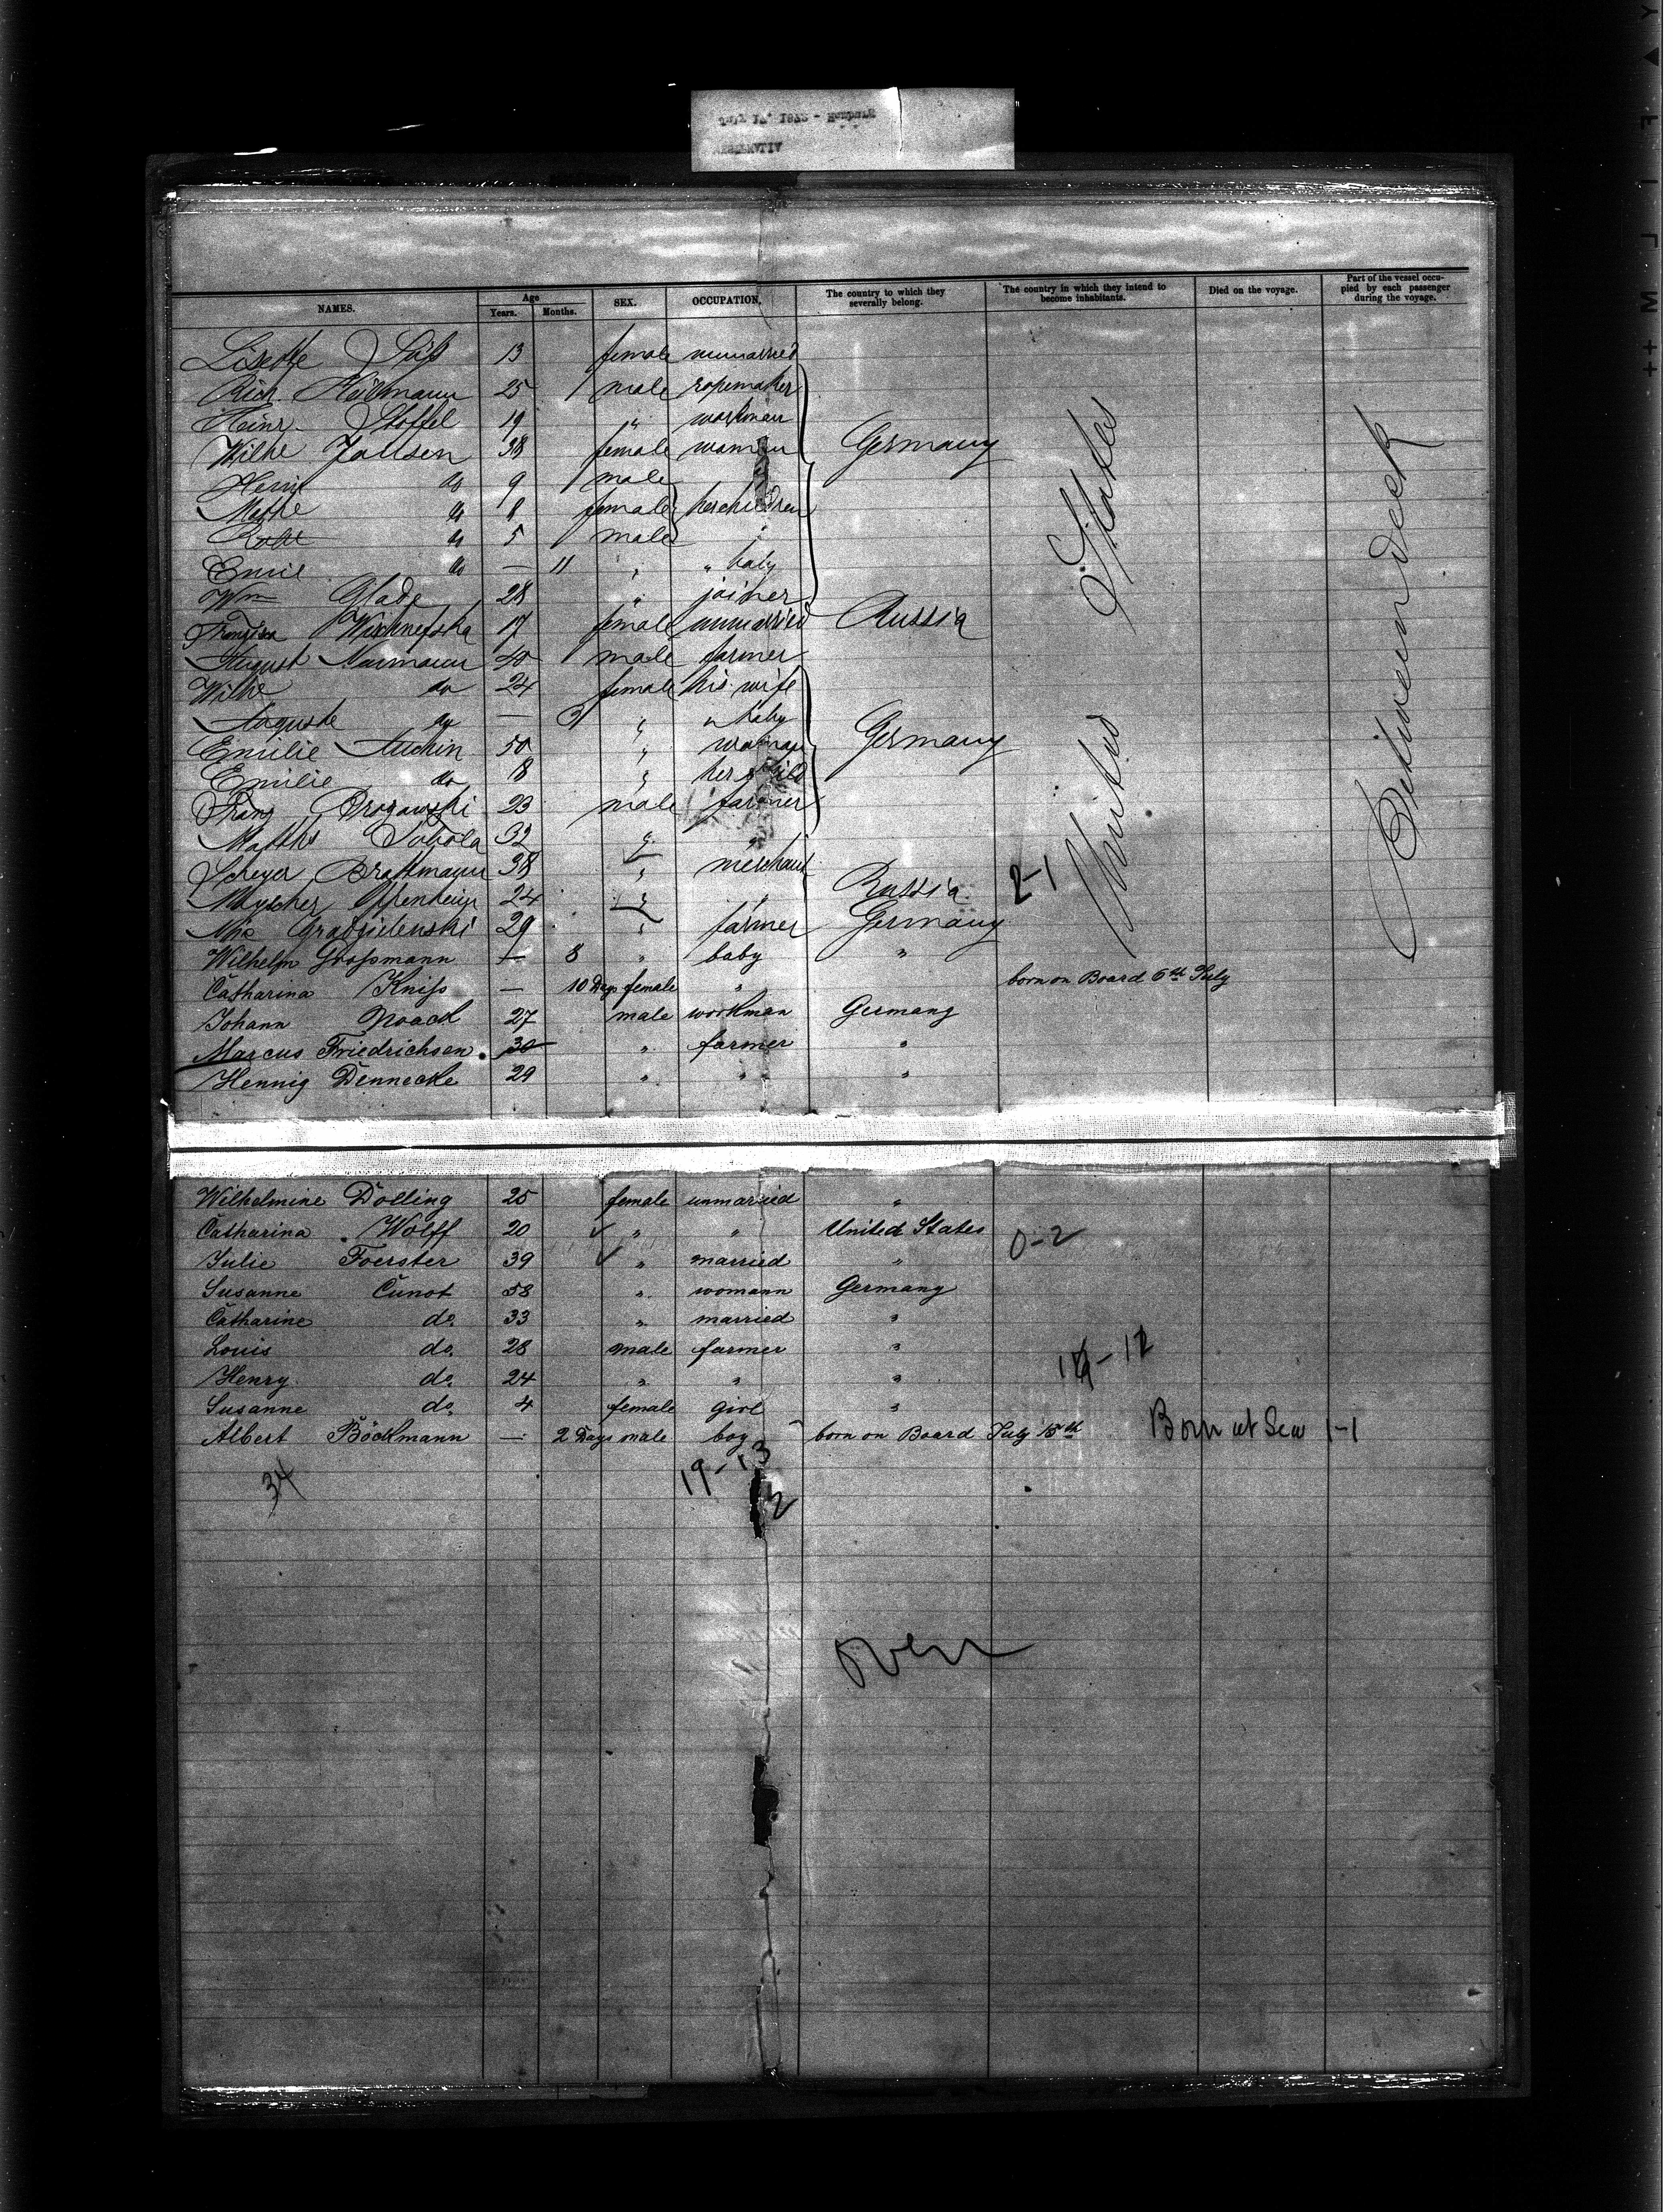 NAMES. Age SEX. OCCUPATION, The country to which they severally belong. The country in which they intend to become inhabitants. Died on the voyage. Part of the vessel occupied by each passenger during the voyage.
Years. Months.
Lisette 13 female unmarried
Rich. Heilmann 25 male ropemaker
Heinr. Stoffel 19 " workman
Wilhe Jansen 38 female woman Germany
do 9 male
Methe do 8 female her children
do 5 male "
Emil do — 11 " " baby
Wm Glade 28 " joiner
17 female unmarried Russia
August Naumann 40 male farmer
Wilhe do 24 female his wife
Auguste do — 3 " " baby
Emilie 50 " woman Germany
Emilie do 8 " her child
Franz 23 male farmer
Matths Sobola 32 " "
38 " merchant
24 " " Russia 2-1
29 " farmer Germany
United States
Between deck
Wilhelm Großmann — 8 " baby "
Catharina Kniss — 10 Days female " born on Board 6th July
Johann Noack 27 male workman Germany
Marcus Friedrichsen 30 " farmer "
Hennig Dennecke 29 " " "
Wilhelmine Dolling 25 female unmarried "
Catharina Wolff 20 " " United States 0-2
Julie Foerster 39 " married "
Susanne Cunot 58 " womann Germany
Catharine do. 33 " married "
Louis do. 28 male farmer "
Henry do. 24 " " "
Susanne do. 4 female girl "
Albert Böckmann — 2 Days male boy born on Board July 15th Born at Sea 1-1
34 19-13
2
Over